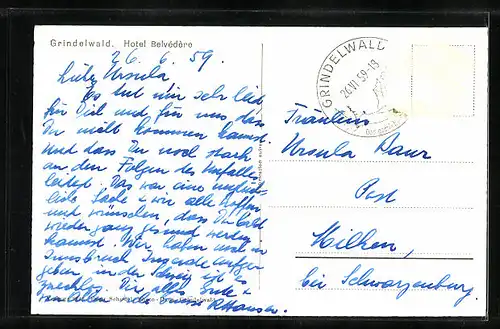 Grindelwald. Hotel Belvédère
26.6.59.
Liebe Ursula
Es tut mir sehr leid
für Dich und für uns dass
Du nicht kommen kannst
und dass Du noch stark
an den Folgen des Unfalles
leidest. Das war eine
Sache & wir alle hoffen
und wünschen, dass Du bald
wieder ganz gesund werden
kannst. Wir haben
Innsbruck
geben in der Schweiz ist es
Dir alles Gute &
von allen
GRINDELWALD
26.VI.59-18
Fräulein
Ursula Daur
Post
Milken,
bei Schwarzenburg